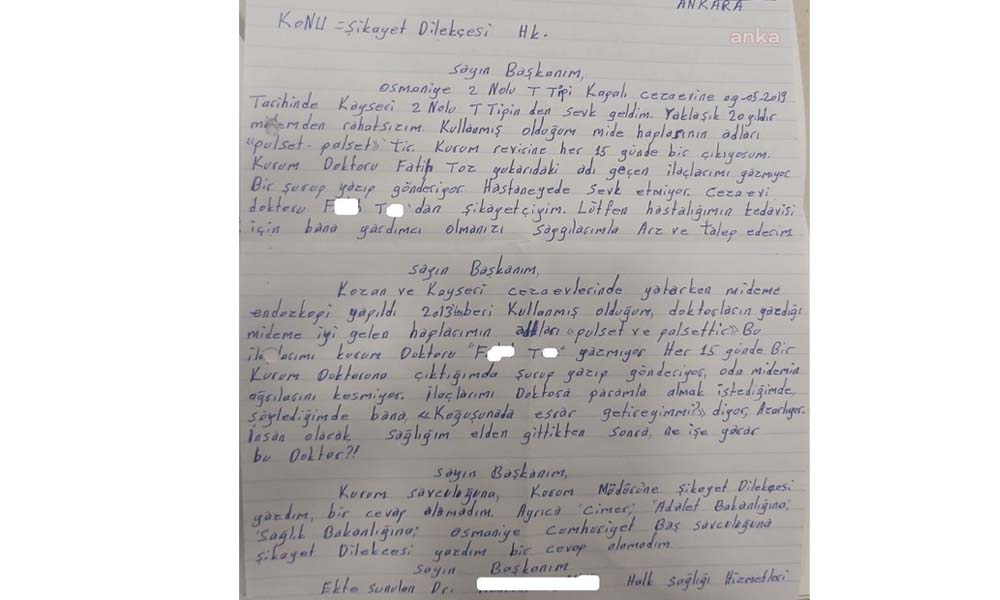 ANKARA
KONU = Şikayet Dilekçesi Hk.
anka
Sayın Başkanım,
Osmaniye 2 Nolu T Tipi Kapalı cezaevine 09-05-2019
Tarihinde Kayseri 2 Nolu T Tipin den sevk geldim. Yaklaşık 20 yıldır
midemden rahatsızım. Kullanmış olduğum mide haplarının adları
«pulset-palset» Tir. Kurum revirine her 15 günde bir çıkıyosum.
Kurum Doktoru Fatih Toz yukarıdaki adı geçen ilaçlarımı yazmıyor
Bir şurup yazıp gönderiyor. Hastaneyede sevk etmiyor. Cezaevi
doktoru F T 'dan şikayetçiyim. Lütfen hastalığımın tedavisi
için bana yardımcı olmanızı saygılarımla Arz ve talep ederim
Sayın Başkanım,
Kozan ve Kayseri cezaevlerinde yatarken mideme
endozkopi yapıldı 2013'ten beri Kullanmış olduğum, doktorların yazdığı
mideme iyi gelen haplarımın adları «pulset ve palsettir» Bu
ilaçlarımı kurum Doktoru "F T " yazmıyor Her 15 günde Bir
Kurum Doktoruna çıktığımda şurup yazıp gönderiyor, oda midemin
ağrılarını kesmiyor. ilaçlarımı Doktora paramla almak istediğimde,
söylediğimde bana, «Koğuşunada esrar getireyimmi?» diyor, Azarlıyor.
İnsan olarak sağlığım elden gittikten sonra, ne işe yarar
bu Doktor?!
Sayın Başkanım,
Kurum savcılığına, Kurum Müdürüne Şikayet Dilekçesi
yazdım, bir cevap alamadım. Ayrıca "Cimer," "Adalet Bakanlığına,"
"Sağlık Bakanlığına," Osmaniye Cumhuriyet Baş savcılığına
Şikayet Dilekçesi yazdım bir cevap alamadım.
Sayın Başkanım
Ekte sunulan Dr. Halk Sağlığı Hizmetleri